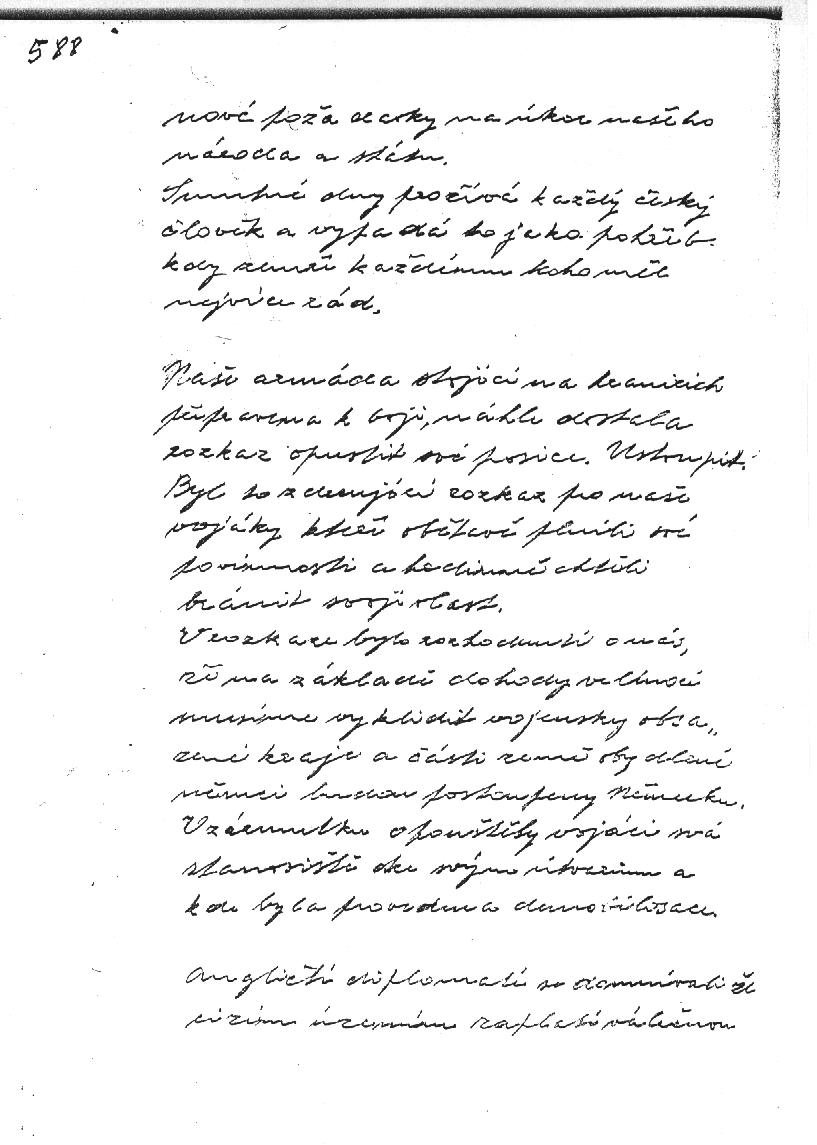 588
nové požadavky na úkor našeho
národa a státu.
Smutné dny prožívá každý český
člověk a vypadá to jako pohřeb
kdy zemře každému koho měl
nejvíce rád.
Naše armáda stojící na hranicích
připravena k boji, náhle dostala
rozkaz opustit své posice. Ustoupit.
Byl to zdrcující rozkaz pro naše
vojáky kteří obětavě plnili své
povinnosti a hrdinně chtěli
bránit svoji vlast.
V rozkaze bylo rozhodnutí o nás,
že na základě dohody velmocí
musíme vyklidit vojensky obsa„
zené kraje a části země obydlené
němci budou postoupeny Německu.
V zármutku opouštěly vojáci svá
stanoviště ke svým útvarům a
kde byla provedena demobilisace.
Angličtí diplomati se domnívali že
cizím územím zaplatí válečnou